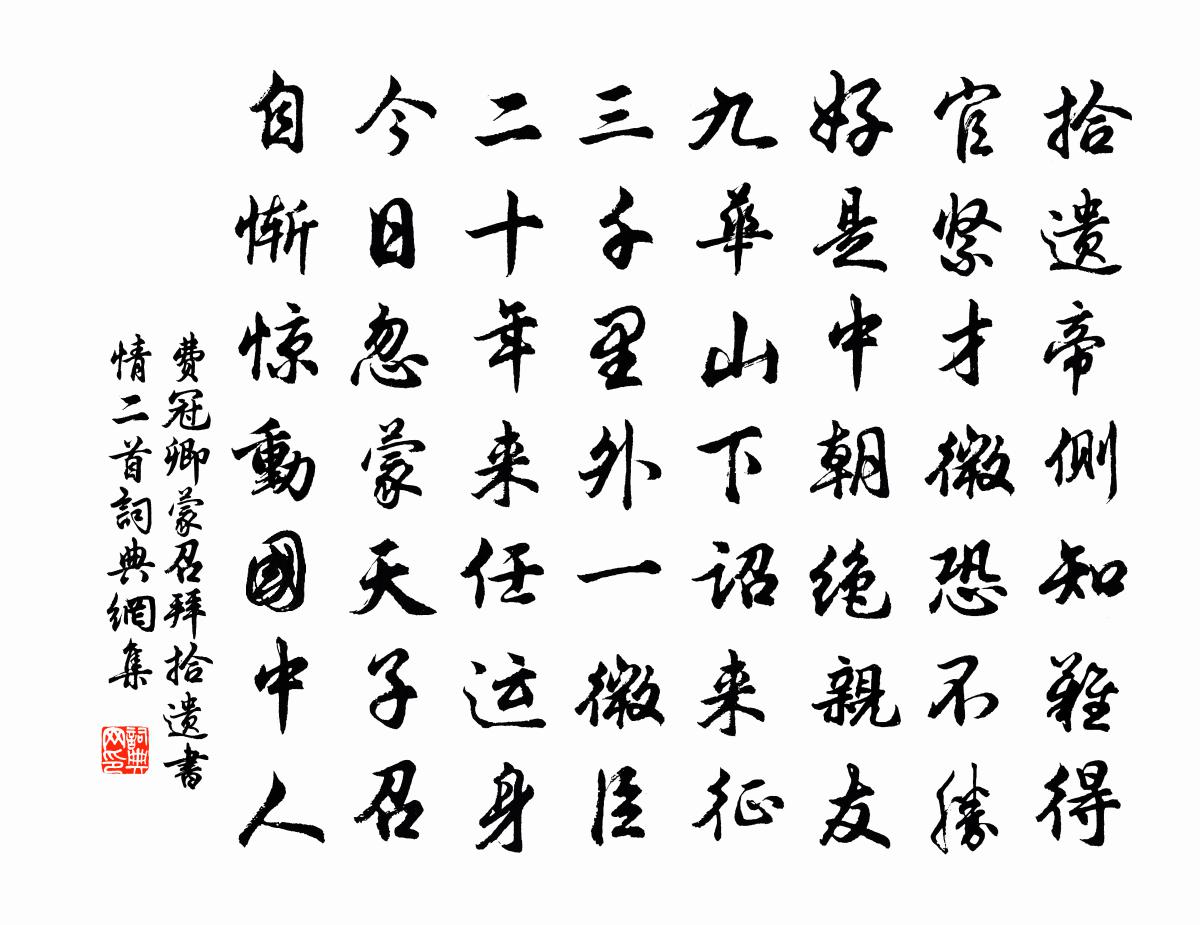 拾遺帝側知難得
官紧才微恐不勝
好是中朝绝親友
九華山下诏来征
三千里外一微臣
二十年来任运身
今日忽蒙天子召
自惭惊動國中人
费冠卿蒙召拜拾遗書
情二首詞典網集
詞典網印